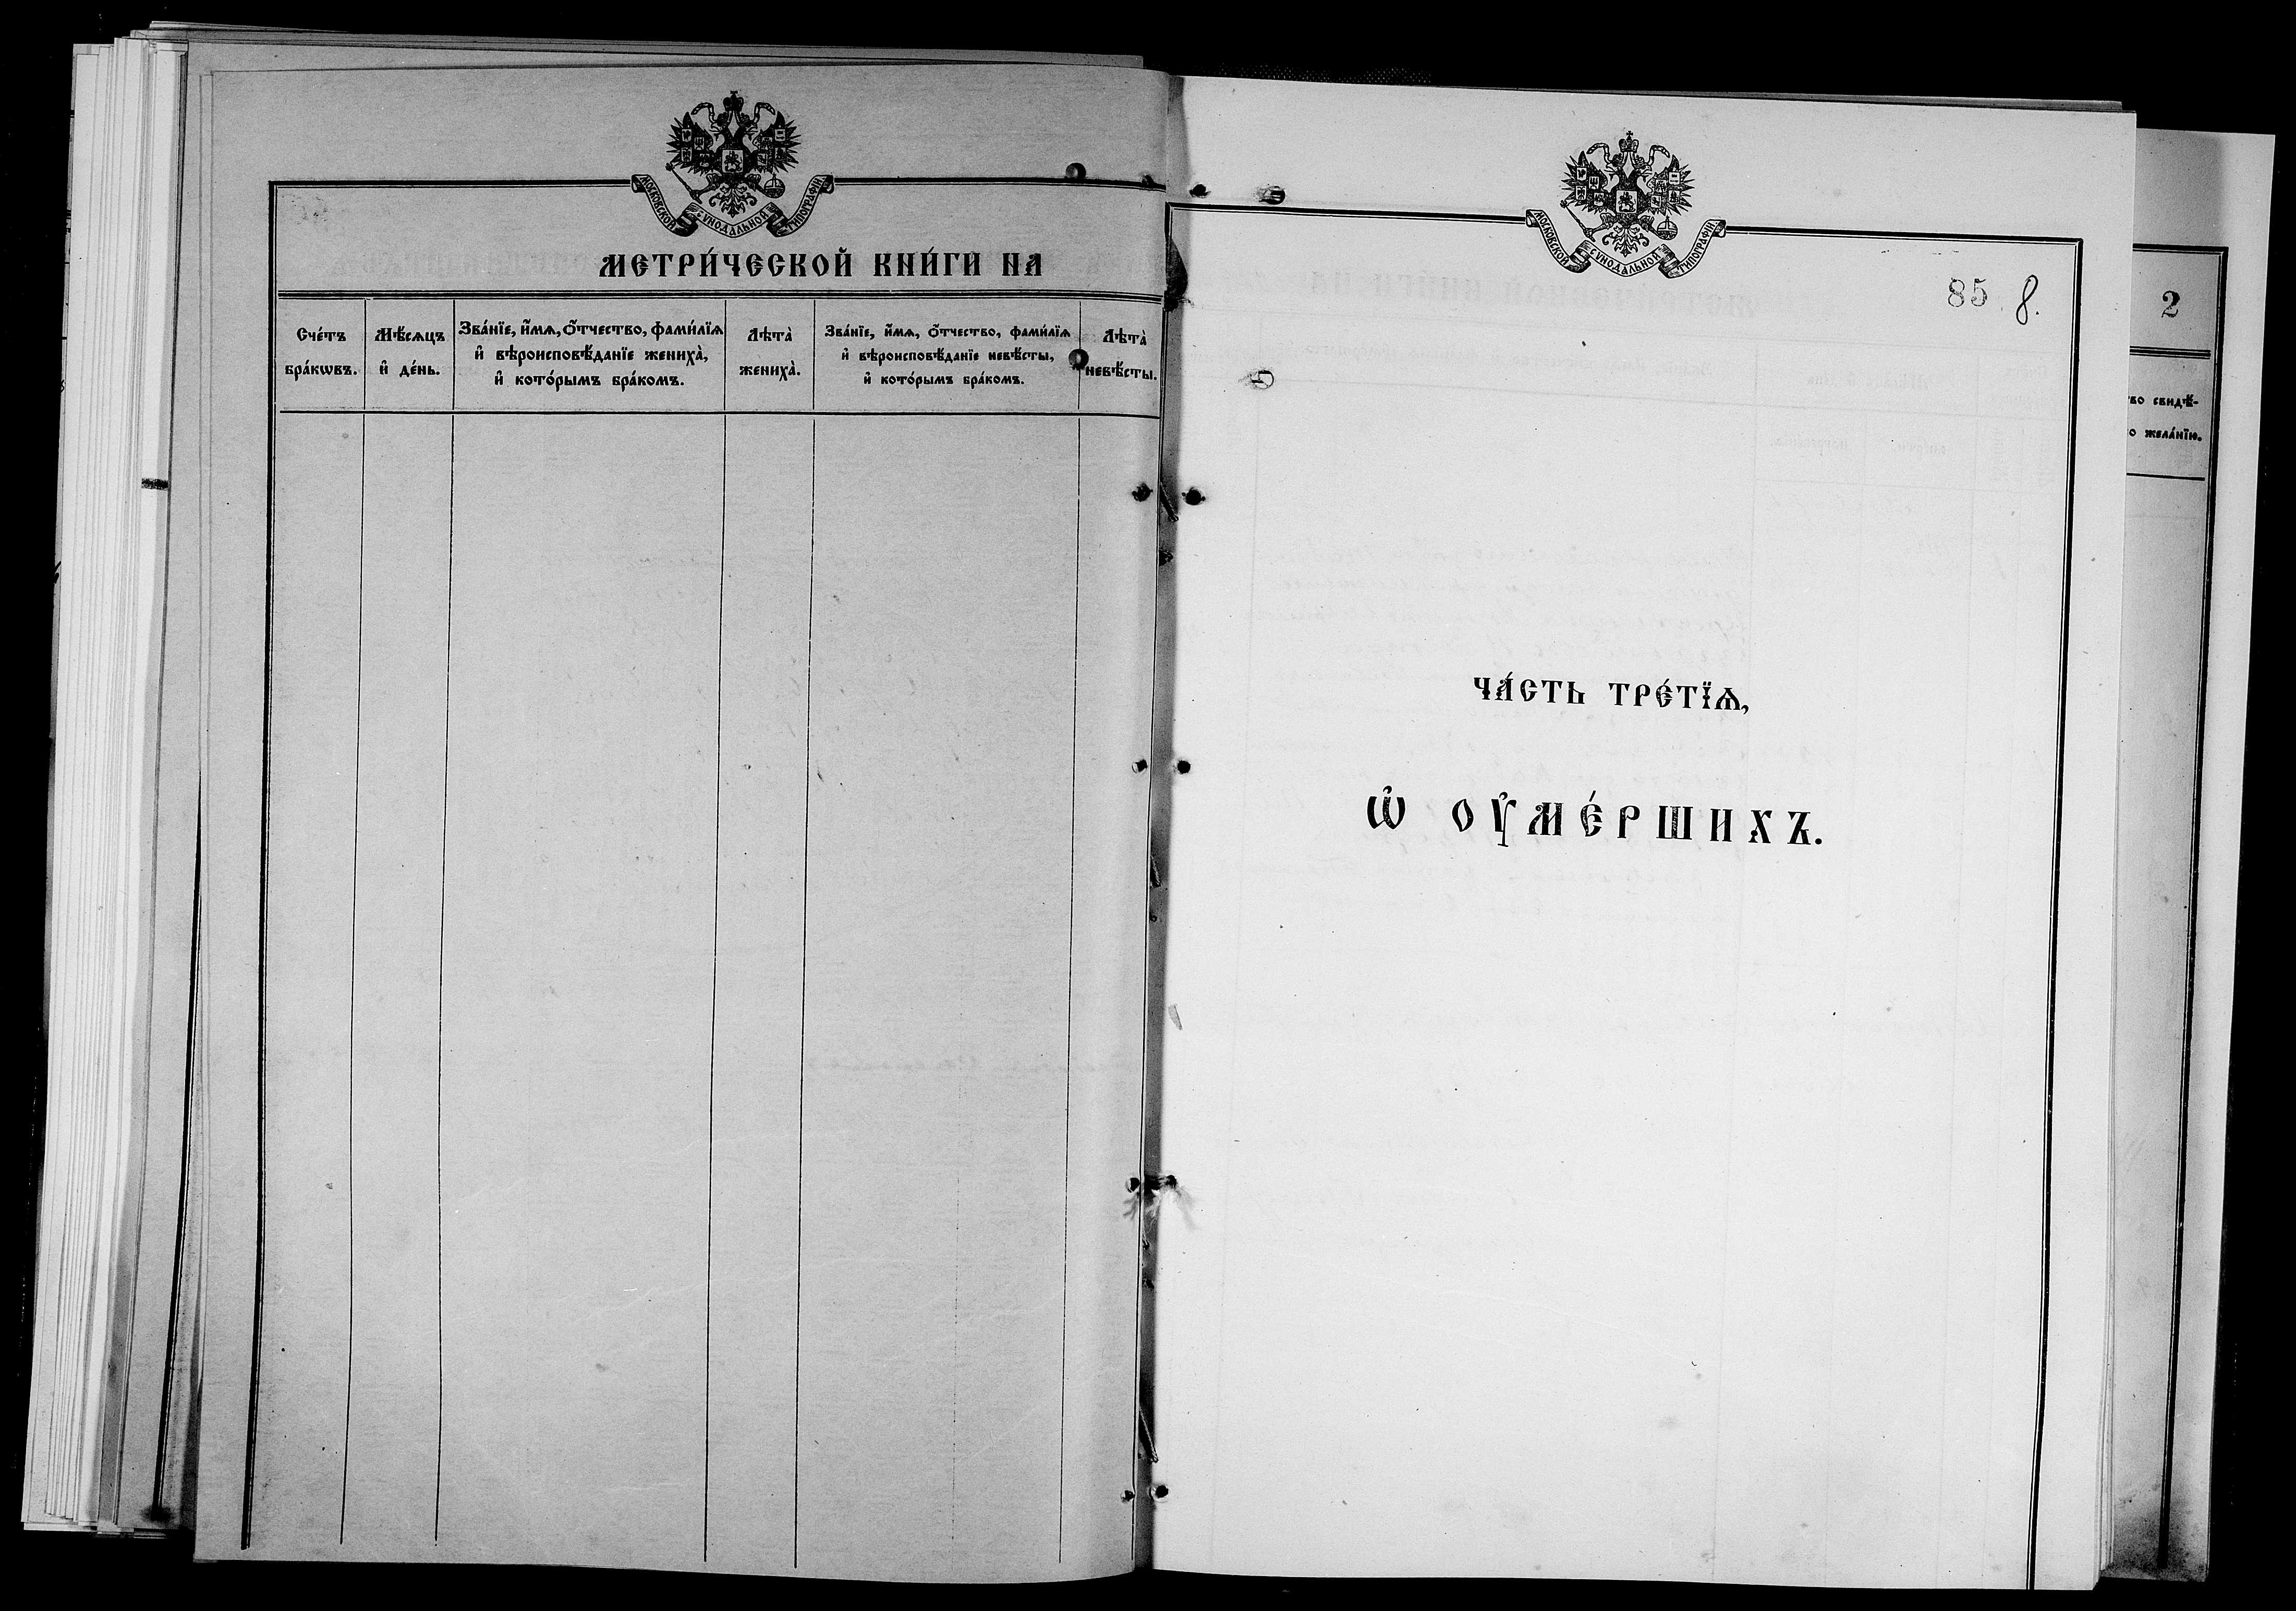 МОСКОВСКОЙ СѴНОДАЛЬНОЙ ТИПОГРАФІИ
МЕТРИ́ЧЕСКОЙ КНИ́ГИ НА
Сче́тъ бра́кѡвъ.
Мѣ́сѧцъ и҆ де́нь.
Зва́нїе, и҆́мѧ, ѻ҆́тчество, фами́лїѧ
и҆ вѣроисповѣ́данїе жениха̀,
и҆ кото́рымъ бра́комъ.
Лѣта̀ жениха̀.
Зва́нїе, и҆́мѧ, ѻ҆́тчество, фами́лїѧ
и҆ вѣроисповѣ́данїе невѣ́сты,
и҆ кото́рымъ бра́комъ.
Лѣта̀ невѣ́сты.
МОСКОВСКОЙ СѴНОДАЛЬНОЙ ТИПОГРАФІИ
85 8.
ЧА́СТЬ ТРЕ́ТЇѦ,
Ѡ҆ ОУ҆МЕ́РШИХЪ.
2
во свидѣ́-
о жела́нїю.